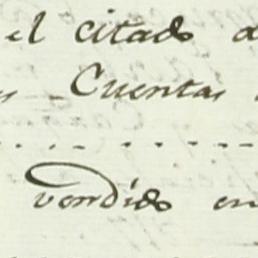 el citado
Cuentas
vendido en